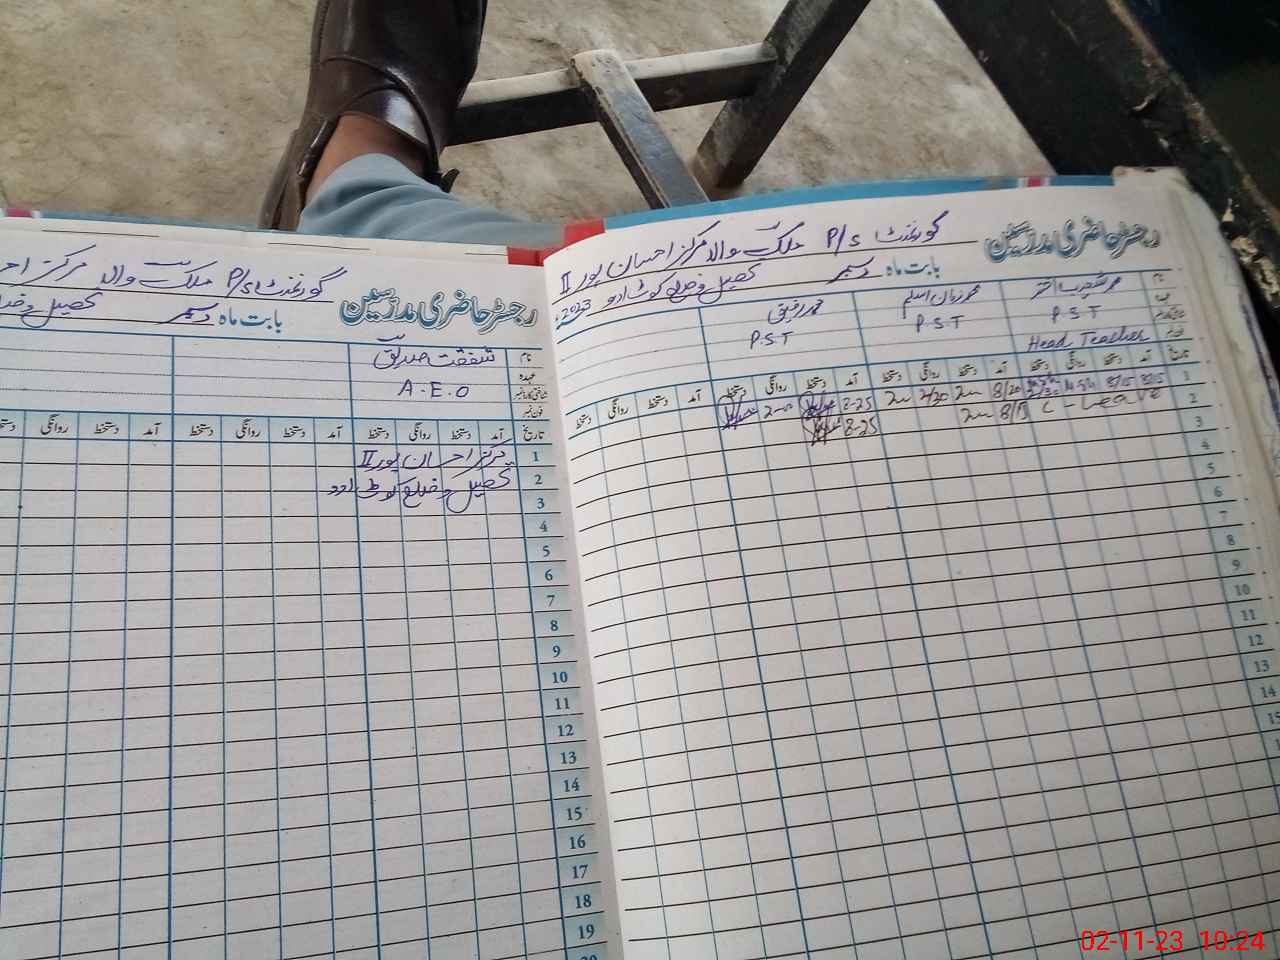 رجسٹر حاضری مدرسین
گورنمنٹ P/S ملک والا مرکز احسان پور II
بابت ماہ دسمبر تحصیل و ضلع کوٹ ادو 2023
نام
محمد زمان اسلم
محمد رفیق
P.S.T
P.S.T
P.S.T
Head Teacher
تاریخ آمد دستخط روانگی دستخط آمد دستخط روانگی دستخط آمد دستخط روانگی دستخط آمد دستخط روانگی دستخط
1 8/15 8/20 2/20 8-25
2 C-Leave 8-25
3
4
5
6
7
8
9
10
11
12
13
14
15
رجسٹر حاضری مدرسین
گورنمنٹ P/S ملک والا مرکز
بابت ماہ دسمبر تحصیل و
نام شفقت صدیق
عہدہ
شناختی کارڈ نمبر A.E.O
فون نمبر
تاریخ آمد دستخط روانگی دستخط آمد دستخط روانگی دستخط آمد دستخط روانگی
1 مرکز احسان پور II
2 تحصیل و ضلع کوٹ ادو
3
4
5
6
7
8
9
10
11
12
13
14
15
16
17
18
19
02-11-23 10:24